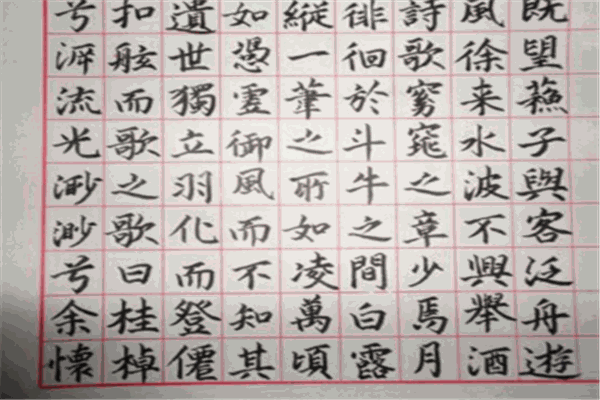 既望蘓子與客泛舟遊
風徐来水波不興舉酒
詩歌窈窕之章少焉月
徘徊於斗牛之間白露
縱一葦之所如凌萬頃
如憑虛御風而不知其
遺世獨立羽化而登僊
扣舷而歌之歌曰桂棹
兮泝流光渺渺兮余懷